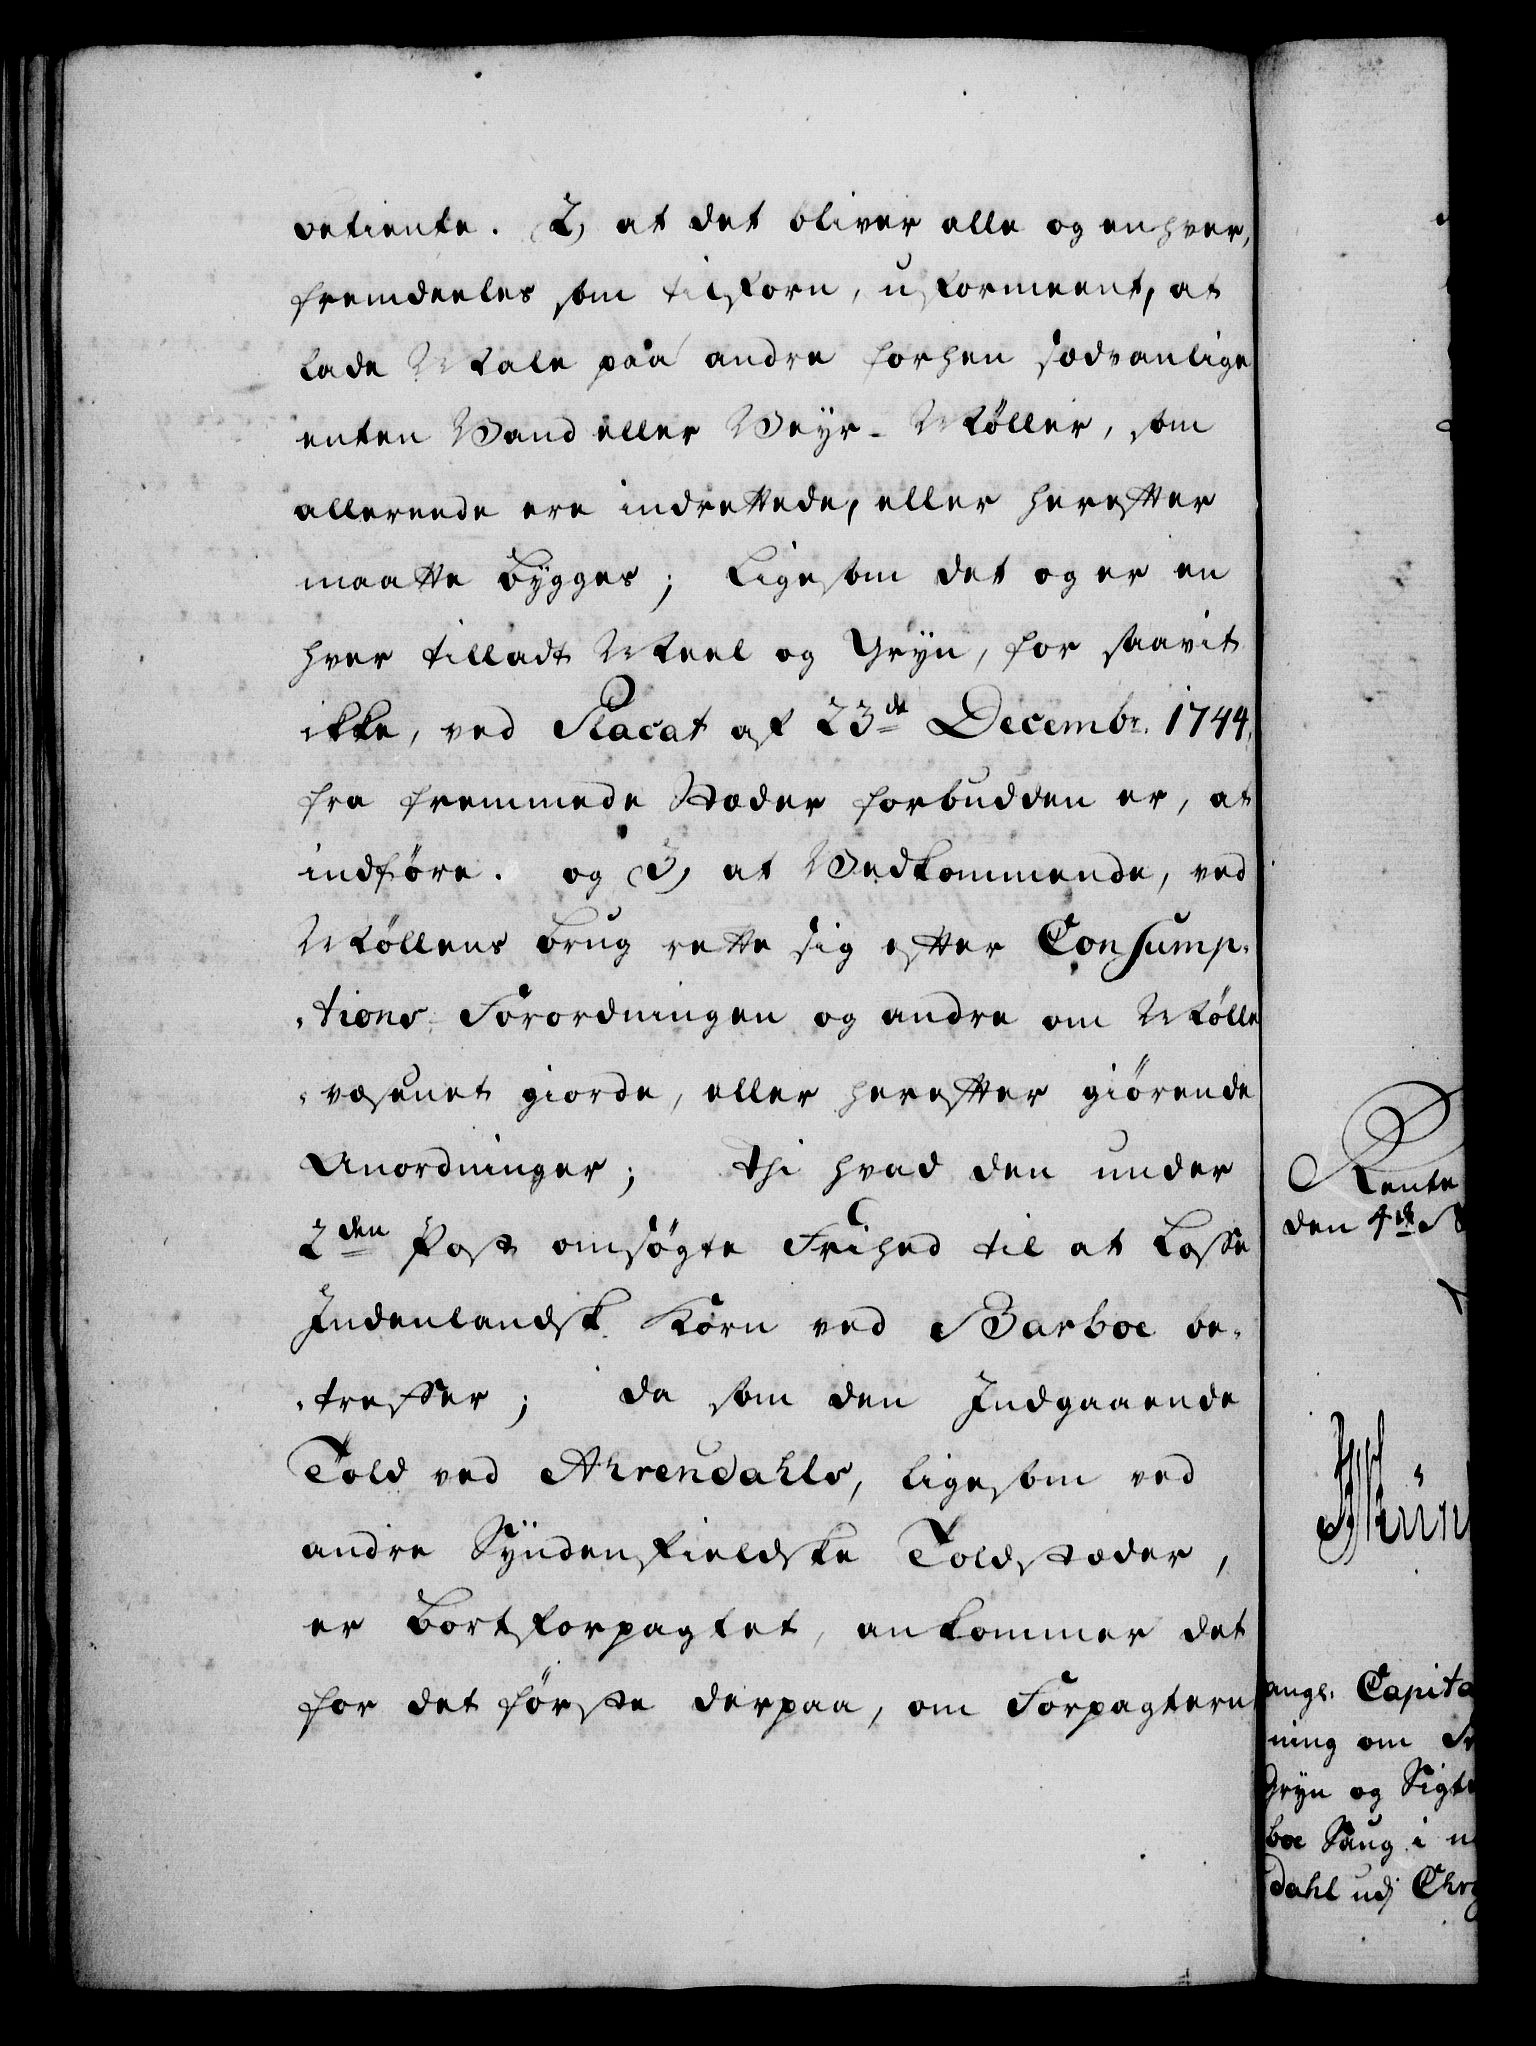 betiente. 2, at det bliver alle og enhver,
fremdeeles som tilforn, uformeent, at
lade Male paa andre forhen sædvanlige
enten Vand eller Veyr-Møller, som
allereede ere indrettede, eller herefter
maatte bygges; Ligesom det og er en
hver tilladt Meel og Gryn, for saavit
ikke, ved Placat af 23de Decembr. 1744,
fra fremmede Stæder forbudden er, at
indføre. og 3, at Vedkommende, ved
Møllens brug rette sig efter Consump-
-tions Forordningen og andre om Mølle
-væsenet giorde, eller herefter giørende
Anordninger; Thi hvad den under
2den Post omsøgte Frihed til at losse
Indenlandsk Korn ved Barboe be-
-treffer; da som den Indgaaende
Told ved Ahrendahls, ligesom ved
andre Syndenfieldske Toldstæder,
er bortforpagtet, ankommer det
for det første derpaa, om Forpagterne
Rente
den 4de
angl. Capita
ning om Fr
Gryn og Sigte
boe Saug i n
dahl udj Chr